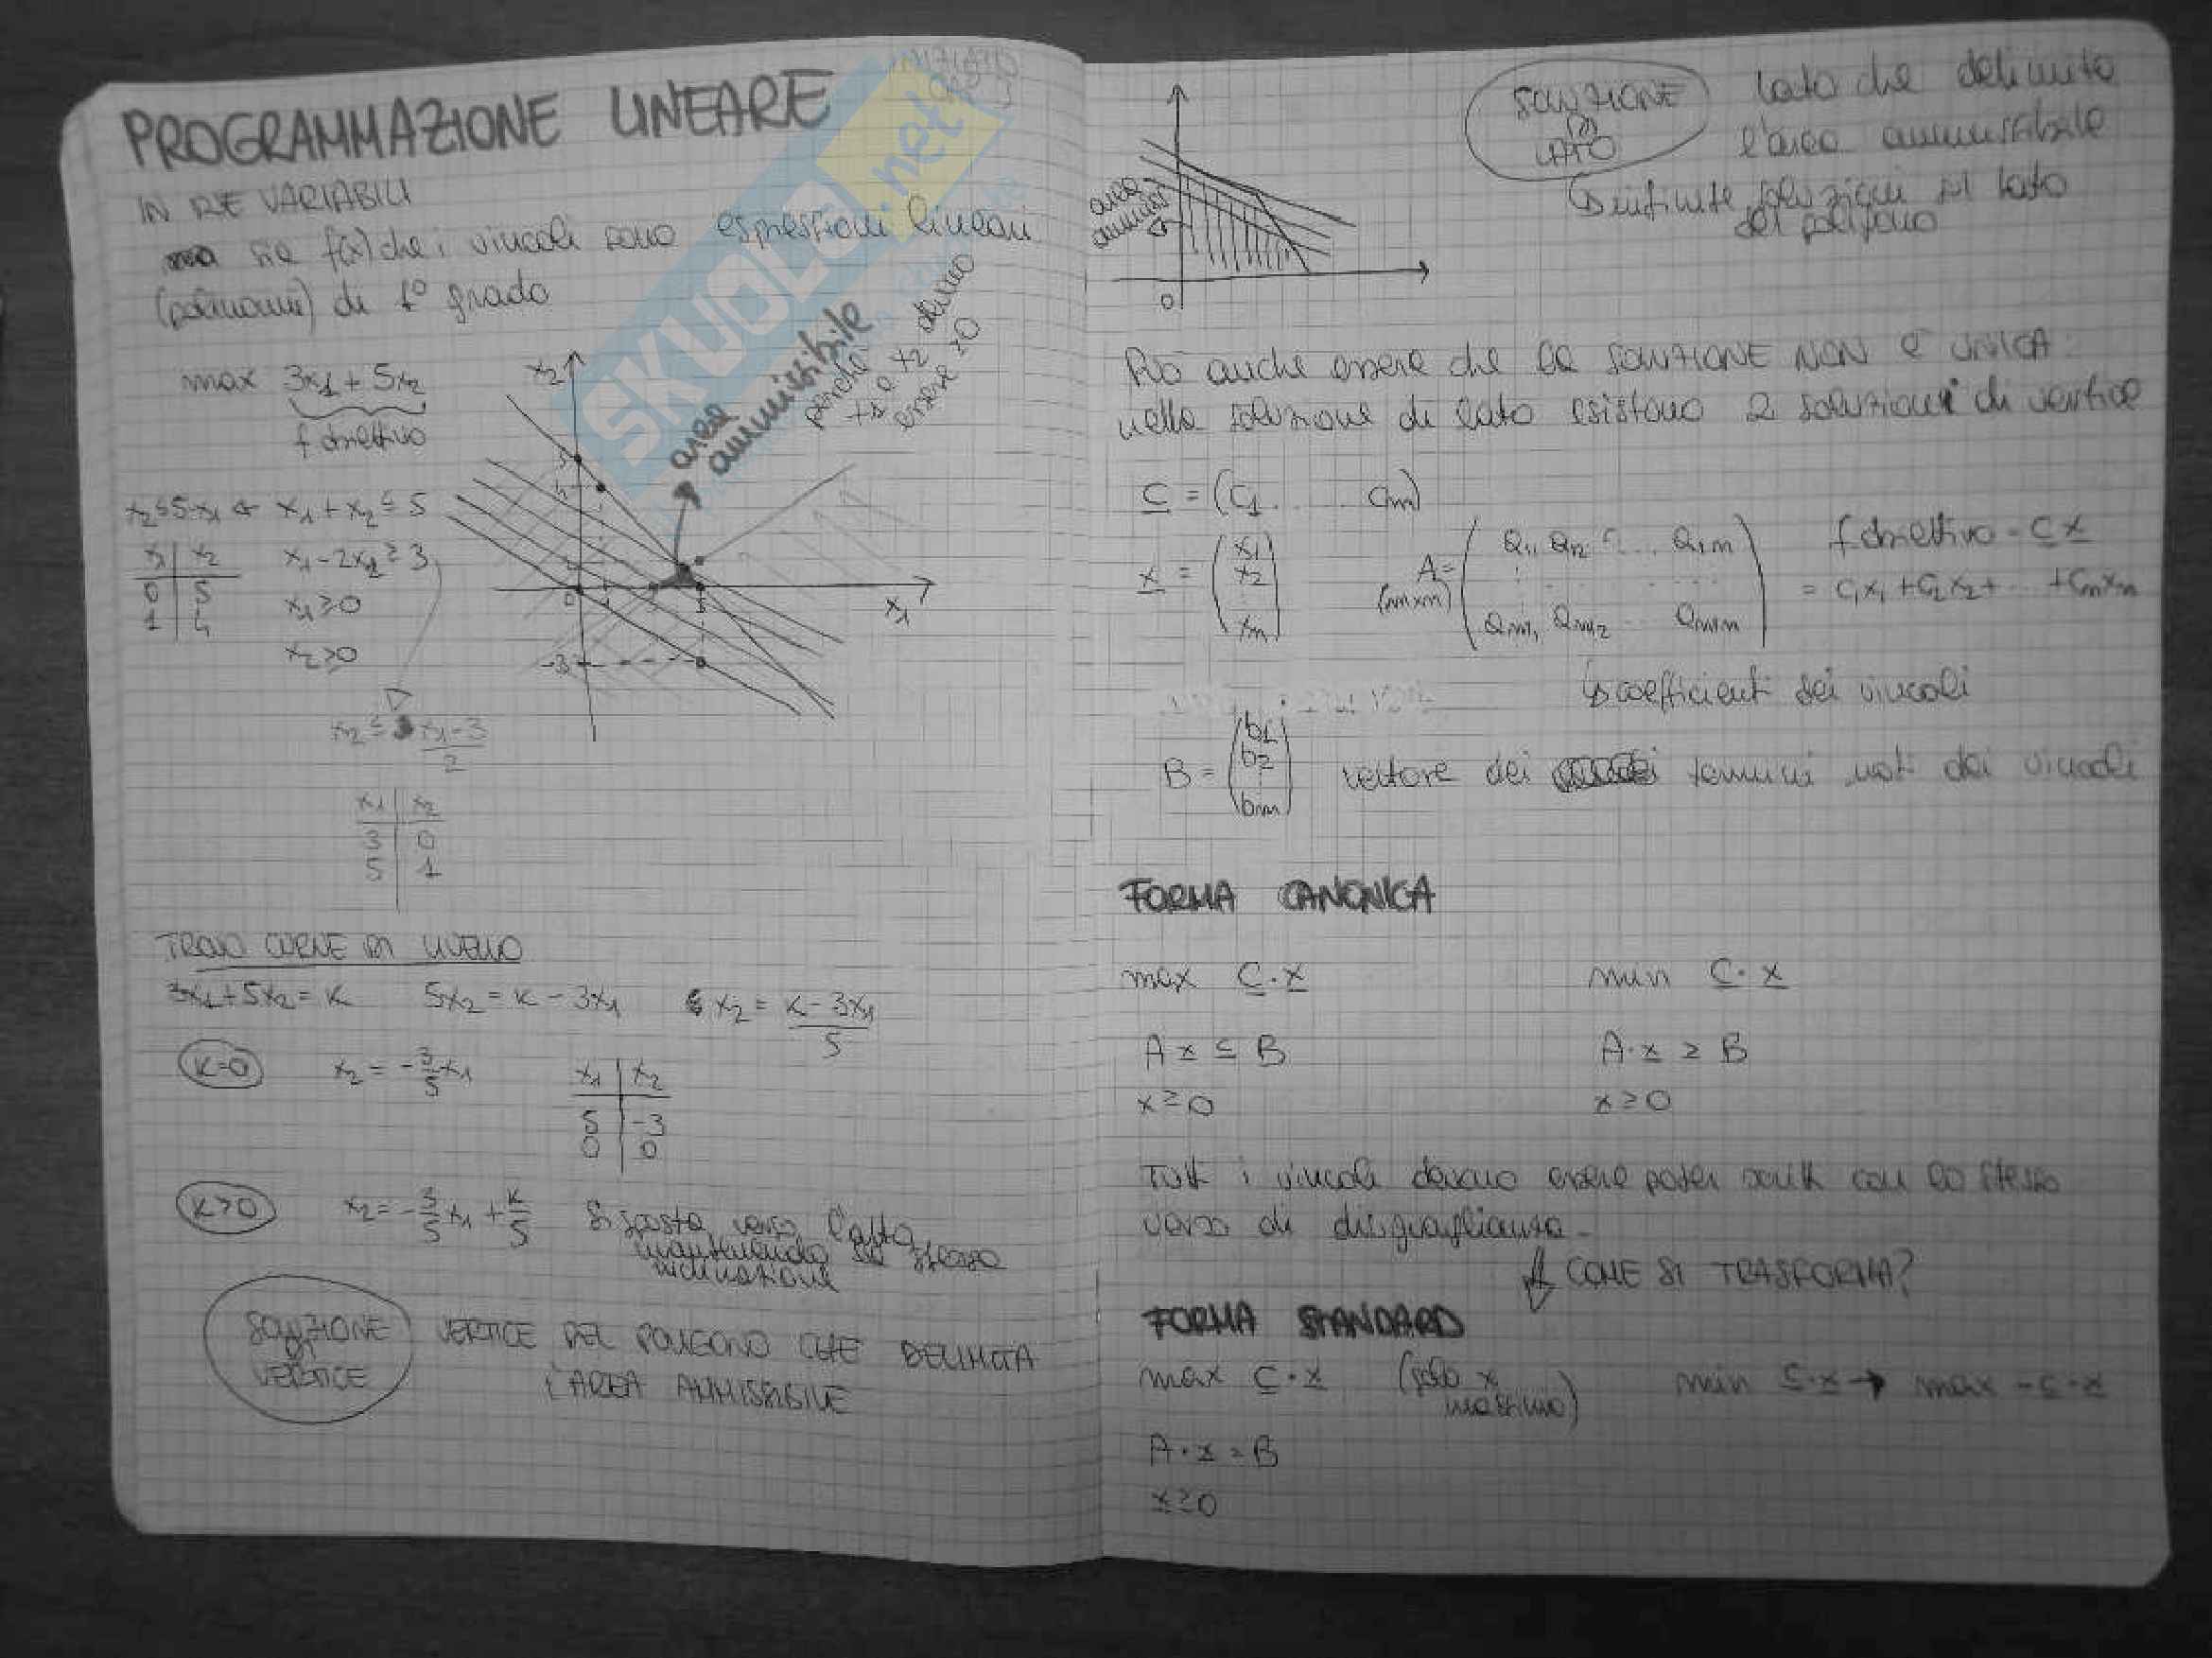 PROGRAMMAZIONE LINEARE
IN DUE VARIABILI
sia f(x) che i vincoli sono espressioni lineari
(polinomi) di 1° grado
max 3x1 + 5x2
f obiettivo
x2≤5-x1 x1 + x2 ≤ 5
x1 - 2x2 ≥ 3
x1 ≥ 0
x2 ≥ 0
x1 x2
0 5
1 4
x2 ≤ x1 - 3
2
x1 x2
3 0
5 1
x2
5
4
0
-3
x1
area
ammissibile
perché
x1 e x2 devono
essere ≥0
SKUOLA.net
TROVO CURVE DI LIVELLO
3x1 + 5x2 = K 5x2 = K - 3x1 x2 = K - 3x1
5
K=0 x2 = -3/5 x1
x1 x2
5 -3
0 0
K>0 x2 = -3/5 x1 + K/5 Si sposta verso l'alto
mantenendo la stessa
inclinazione
SOLUZIONE
DI
VERTICE
VERTICE DEL POLIGONO CHE DELIMITA
L'AREA AMMISSIBILE
area
ammiss.
0
SOLUZIONE
DI
LATO
lato che delimita
l'area ammissibile
infinite soluzioni sul lato
del poligono
Può anche essere che la SOLUZIONE NON È UNICA
nella soluzione di lato esistono 2 soluzioni di vertice
C = (C1 ... Cn)
x = (x1 x2 xn)
A = (a11 a12 ... a1n
(mxn)
am1 am2 ... amn)
f obiettivo = C x
= C1x1 + C2x2 + ... + Cnxn
coefficienti dei vincoli
B = (b1 b2 bm) vettore dei termini noti dei vincoli
FORMA CANONICA
max C · x min C · x
A x ≤ B A · x ≥ B
x ≥ 0 x ≥ 0
Tutti i vincoli devono essere scritti con lo stesso
verso di disuguaglianza.
COME SI TRASFORMA?
FORMA STANDARD
max C · x (solo x
massimo)
min C · x → max -C · x
A · x = B
x ≥ 0